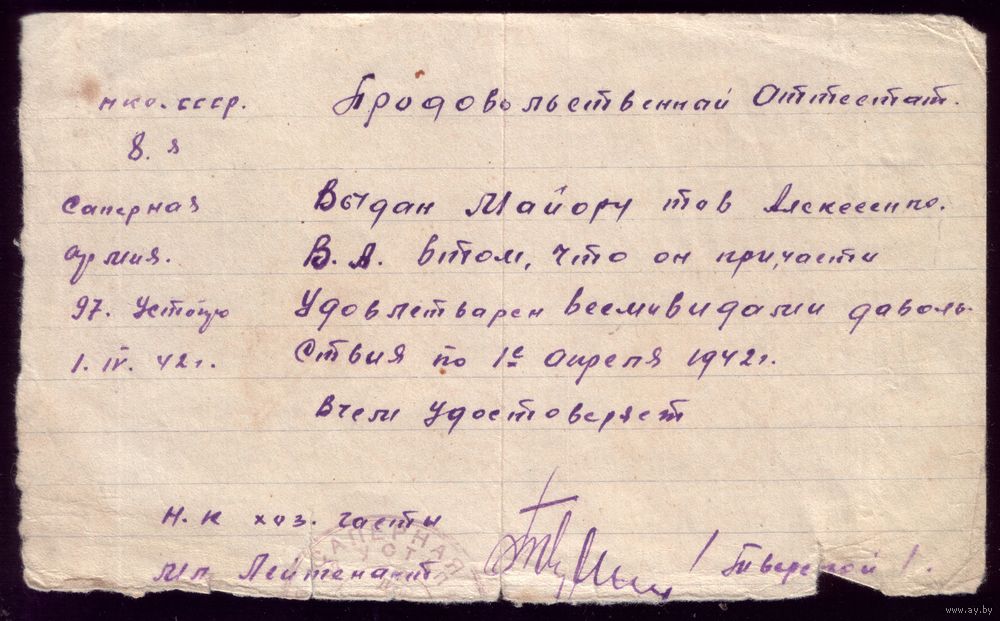 нко. ссср.
8. я
Саперная
армия.
97.
1. IV. 42 г.
Продовольственнай Оттестат.
Выдан Майору тов Алексеенко.
В. А. втом, что он при части
Удовлетварен всемивидами даволь-
ствия по 1е апреля 1942 г.
Вчем удостоверяет
Н. к хоз. часты
Мл Лейтенант / Тверской /.
САПЕРНАЯ
www.ay.by